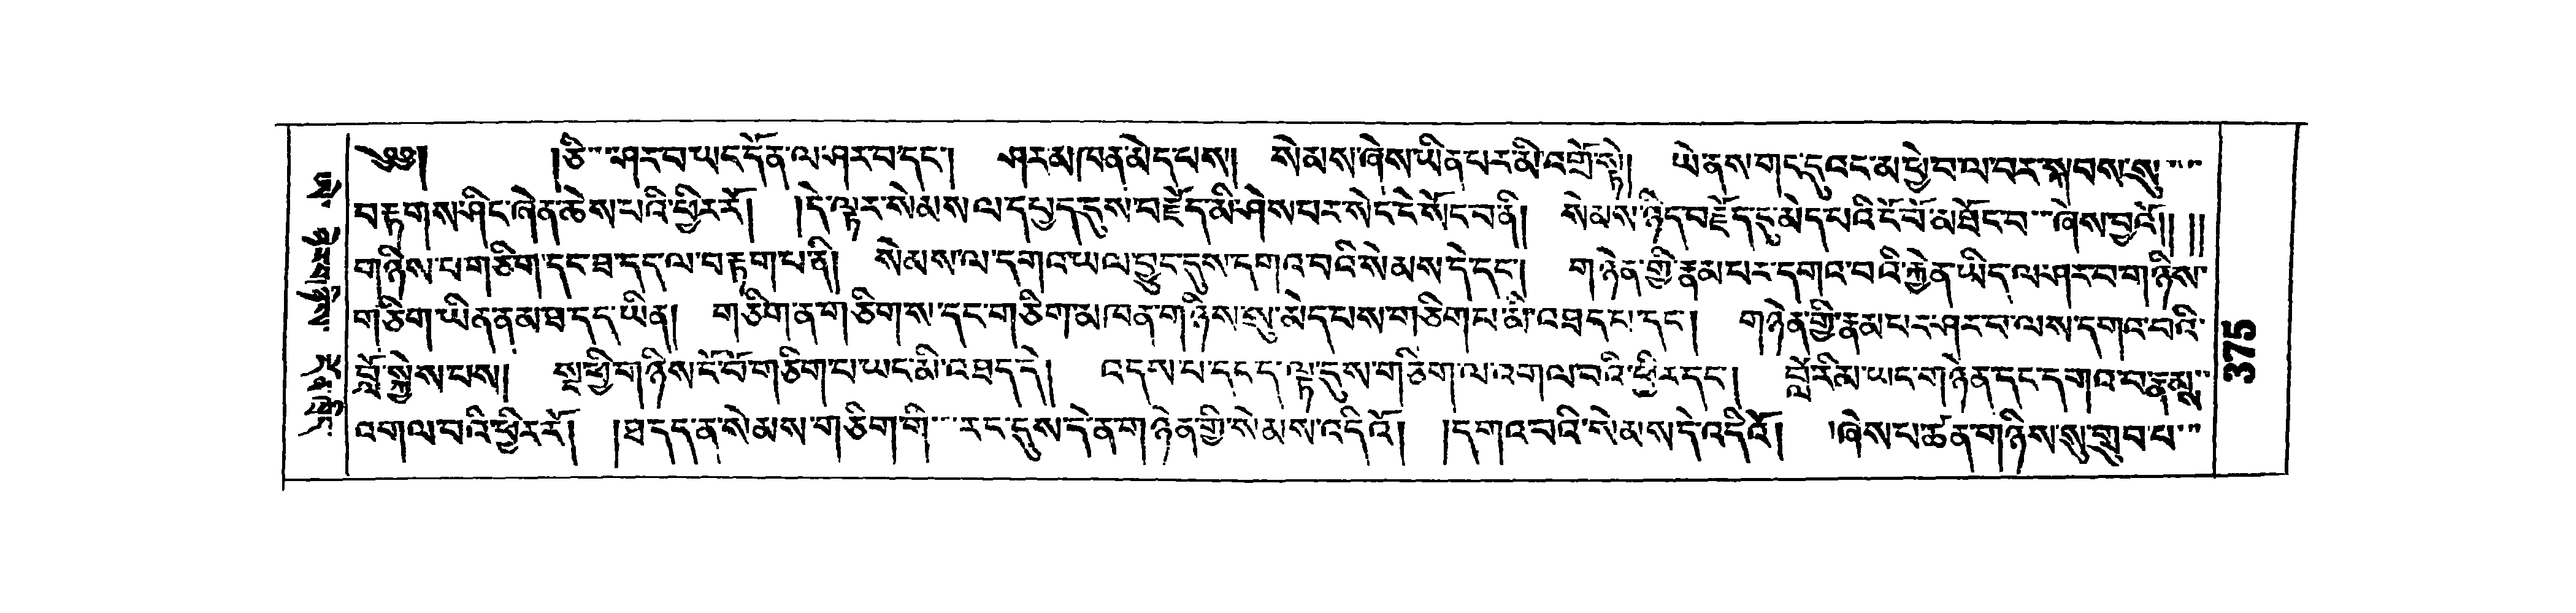 ༄༅། །ཅི་་་ཤར་བ་ཡང་དོན་ལ་ཤར་བ་དང་། ཤར་མཁན་མེད་པས། སེམས་ཞེས་ཡིན་པར་མི་འགྲོ་སྟེ། ཡེ་ནས་གང་དུའང་མ་ཕྱེ་བ་ལ་བར་སྐབས་སུ་་་
བརྟགས་ཤིང་ཞེན་ཆེས་པའི་ཕྱིར་རོ། །དེ་ལྟར་སེམས་ལ་དཔྱད་དུས་བརྗོད་མི་ཤེས་པར་སེང་ངེ་སོང་བ་ནི། སེམས་ཉིད་བརྗོད་དུ་མེད་པའི་ངོ་བོ་མཐོང་བ་་་ཞེས་བྱའོ།། །།
གཉིས་པ་གཅིག་དང་ཐ་དད་ལ་བརྟག་པ་ནི། སེམས་ལ་དགའ་ཡལ་བྱུང་དུས་དགའ་བའི་སེམས་དེ་དང་། གཉེན་གྱི་རྣམ་པར་དགའ་བའི་རྐྱེན་ཡིད་ལ་ཤར་བ་གཉིས་
གཅིག་ཡིན་ནམ་ཐ་དད་ཡིན། གཅིག་ན་གཅིག་ས་དང་གཅིག་མཁན་གཉིས་སུ་མེད་པས་གཅིག་པ་མི་འཐད་པ་དང་། གཉེན་གྱི་རྣམ་པར་ཤར་བ་ལས་དགའ་བའི་
བློ་སྐྱེས་པས། སྔ་ཕྱི་གཉིས་ངོ་བོ་གཅིག་པ་ཡང་མི་འཐད་དེ། འདས་པ་དང་ད་ལྟ་དུས་གཅིག་ལ་འགལ་བའི་ཕྱིར་དང་། བློ་རིམ་ཡང་གཉེན་དང་དགའ་བ་རྣམས་་
འགལ་བའི་ཕྱིར་རོ། །ཐ་དད་ན་སེམས་གཅིག་གི་་་རང་དུས་དེ་ན་གཉེན་གྱི་སེམས་འདིའོ། །དགའ་བའི་སེམས་དེ་འདིའོ། །ཞེས་པ་ཚན་གཉིས་སུ་གྲུབ་པ་་་